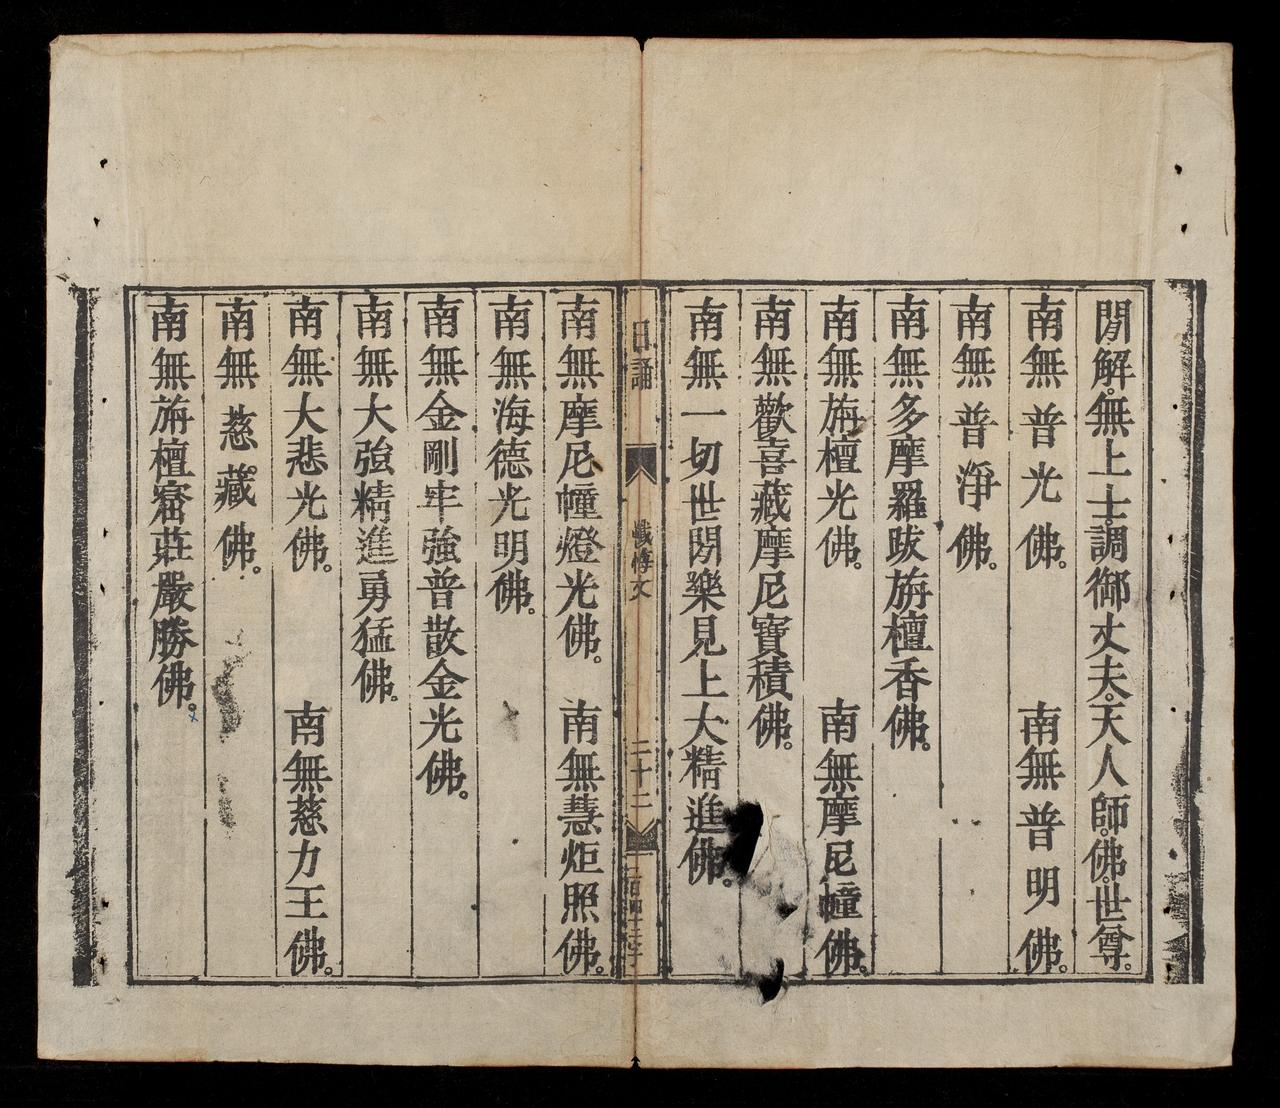 閒解。無上士。調御丈夫。天人師。佛。世尊。
南無普光佛。 南無普明佛。
南無普淨佛。
南無多摩羅跋旃檀香佛。
南無旃檀光佛。 南無摩尼幢佛。
南無歡喜藏摩尼寶積佛。
南無一切世閒樂見上大精進佛。
日誦 懺悔文 二十二 二百四十三字
南無摩尼幢燈光佛。 南無慧炬照佛。
南無海德光明佛。
南無金剛牢強普散金光佛。
南無大強精進勇猛佛。
南無大悲光佛。 南無慈力王佛。
南無慈藏佛。
南無旃檀窟莊嚴勝佛。